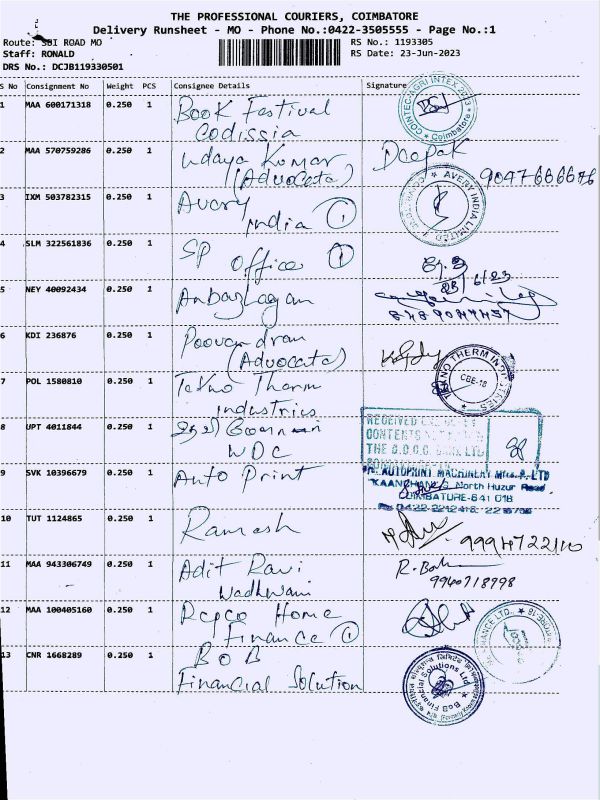 THE PROFESSIONAL COURIERS, COIMBATORE
Delivery Runsheet - MO - Phone No.:0422-3505555 - Page No.:1
Route: SBI ROAD MO
RS No.: 1193305
Staff: RONALD
RS Date: 23-Jun-2023
DRS No.: DCJB119330501
S No Consignment No Weight PCS Consignee Details Signature
1 MAA 600171318 0.250 1 Book Festival
Codissia
COINTEC-AGRI INTEX 2023 Coimbatore
2 MAA 570759286 0.250 1 Udaya Kumar Deepak
(Advocate) 9047666676
3 IXM 503782315 0.250 1 Avery
India 1
AVERY INDIA LIMITED
4 SLM 322561836 0.250 1 SP
Office 1
23/6/23
5 NEY 40092434 0.250 1 Anbazhagan
6 KDI 236876 0.250 1 Poovendran
(Advocate)
7 POL 1580810 0.250 1 Tekno Therm
Industries
TEKNO THERM INDUSTRIES CBE-18
8 UPT 4011844 0.250 1
WDC
RECEIVED
CONTENTS
THE D.C.C. BANK LTD
9 SVK 10396679 0.250 1 Auto Print
AUTOPRINT MACHINERY Mfrs. P. LTD
North Huzur Road
COIMBATORE-641 018
10 TUT 1124865 0.250 1 Ramesh
9994722110
11 MAA 943306749 0.250 1 Adit Ravi
Wadhwani
9940718998
12 MAA 100405160 0.250 1 Repco Home
Finance 1
13 CNR 1668289 0.250 1 BOB
Financial Solution
BoB Financial Solutions Ltd